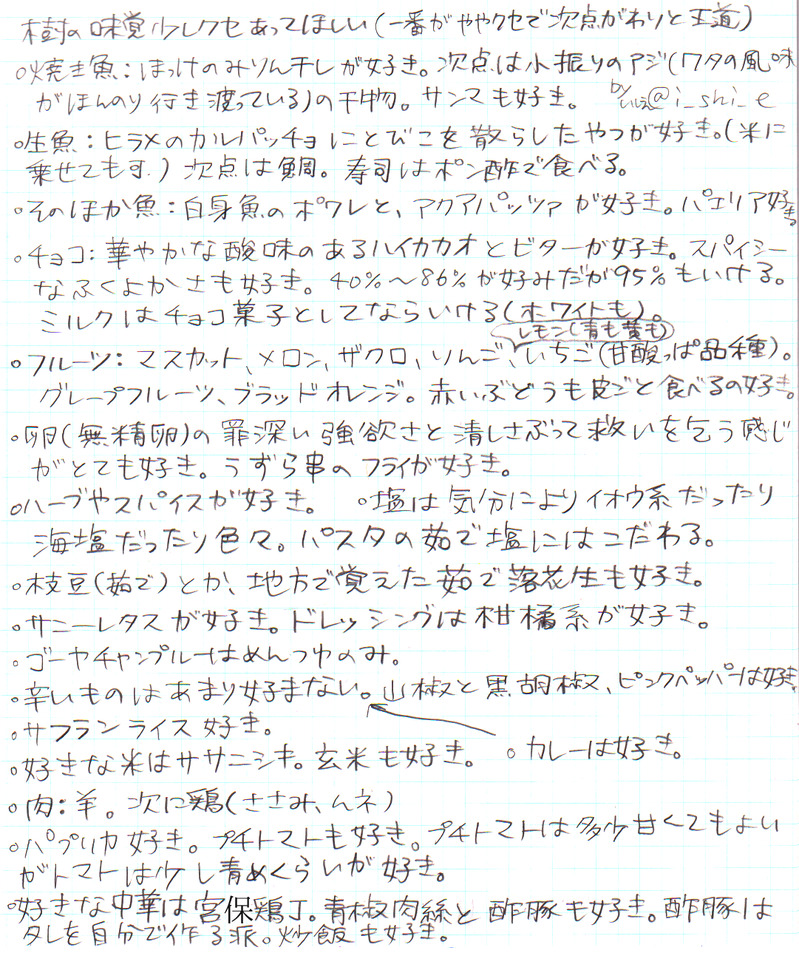 樹の味覚少しクセあってほしい(一番がややクセで次点がわりと王道)
○焼き魚:ほっけのみりん干しが好き。次点は小振りのアジ(ワタの風味
がほんのり行き渡っている)の干物。サンマも好き。 @i_shi_e
○生魚:ヒラメのカルパッチョにとびこを散らしたやつが好き。(米に
乗せてもす。)次点は鯛。寿司はポン酢で食べる。
○そのほか魚:白身魚のポワレと、アクアパッツァが好き。パエリア好き
○チョコ:華やかな酸味のあるハイカカオとビターが好き。スパイシー
なふくよかさも好き。40%〜86%が好みだが95%もいける。
ミルクはチョコ菓子としてならいける(ホワイトも)。
レモン(青も黄も)
○フルーツ:マスカット、メロン、ザクロ、りんご、いちご(甘酸っぱ品種)。
グレープフルーツ、ブラッドオレンジ。赤いぶどうも皮ごと食べるの好き。
○卵(無精卵)の罪深い強欲さと清しさぶって救いを乞う感じ
がとても好き。うずら串のフライが好き。
○ハーブやスパイスが好き。 ○塩は気分によりイオウ系だったり
海塩だったり色々。パスタの茹で塩にはこだわる。
○枝豆(茹で)とか、地方で覚えた茹で落花生も好き。
○サニーレタスが好き。ドレッシングは柑橘系が好き。
○ゴーヤチャンプルーはめんつゆのみ。
○辛いものはあまり好まない。山椒と黒胡椒、ピンクペッパーは好き
○サフランライス好き。
○カレーは好き。
○好きな米はササニシキ。玄米も好き。
○肉:羊。次に鶏(ささみ、ムネ)
○パプリカ好き。プチトマトも好き。プチトマトは多少甘くてもよい
がトマトは少し青めくらいが好き。
○好きな中華は宮保鶏丁。青椒肉絲と酢豚も好き。酢豚は
タレを自分で作る派。炒飯も好き。